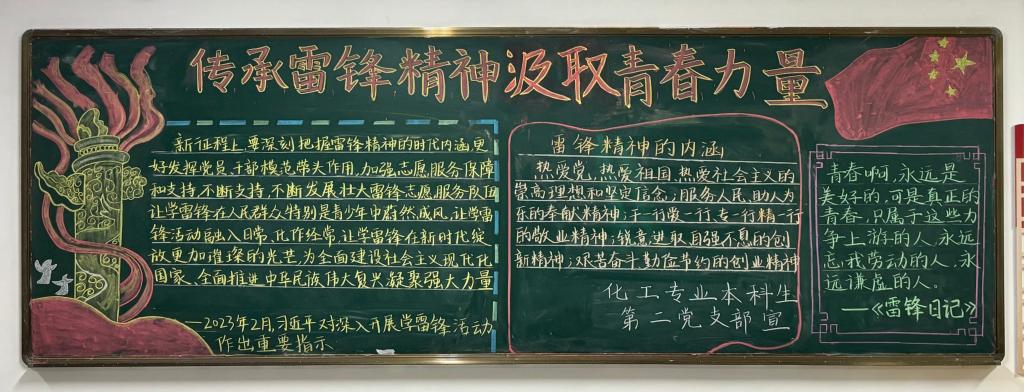 传承雷锋精神汲取青春力量
新征程上,要深刻把握雷锋精神的时代内涵,更
好发挥党员、干部模范带头作用,加强志愿服务保障
和支持,不断支持,不断发展壮大雷锋志愿服务队伍
让学雷锋在人民群众特别是青少年中蔚然成风,让学雷
锋活动融入日常、化作经常,让学雷锋在新时代绽
放更加璀璨的光芒,为全面建设社会主义现代化
国家、全面推进中华民族伟大复兴凝聚强大力量
——2023年2月,习近平对深入开展学雷锋活动
作出重要指示
雷锋精神的内涵
热爱党,热爱祖国,热爱社会主义的
崇高理想和坚定信念;服务人民,助人为
乐的奉献精神;干一行爱一行,专一行精一行
的敬业精神;锐意进取自强不息的创
新精神;艰苦奋斗勤俭节约的创业精神
化工专业本科生
第二党支部宣
青春啊,永远是
美好的,可是真正的
青春,只属于这些力
争上游的人,永远
忘我劳动的人,永
远谦虚的人。
——《雷锋日记》